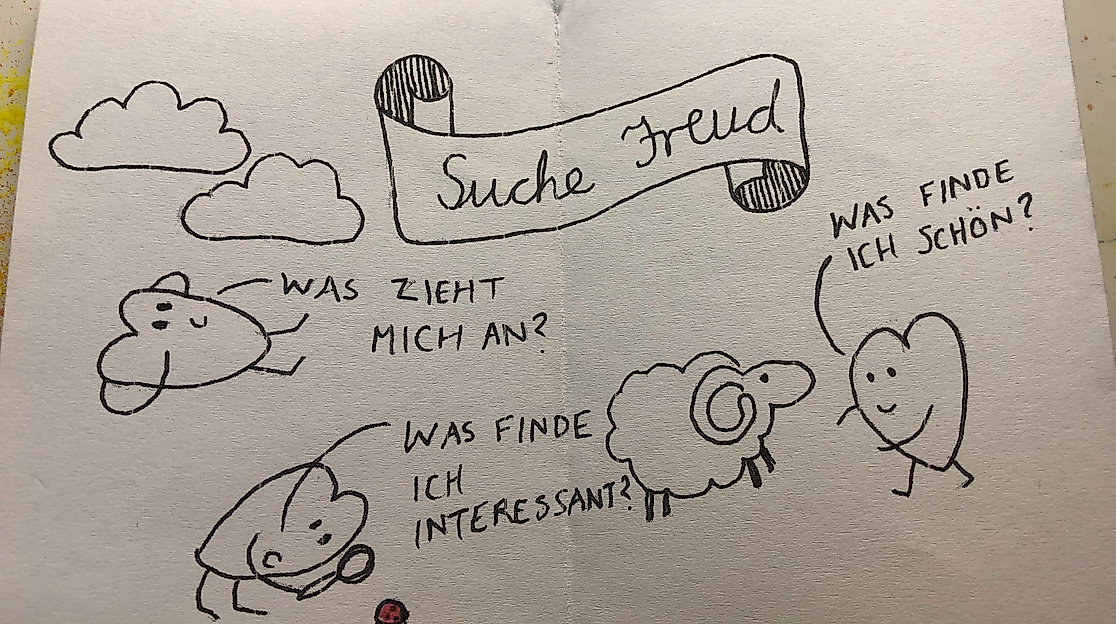 Suche Freud
WAS FINDE
ICH SCHÖN?
WAS ZIEHT
MICH AN?
WAS FINDE
ICH
INTERESSANT?